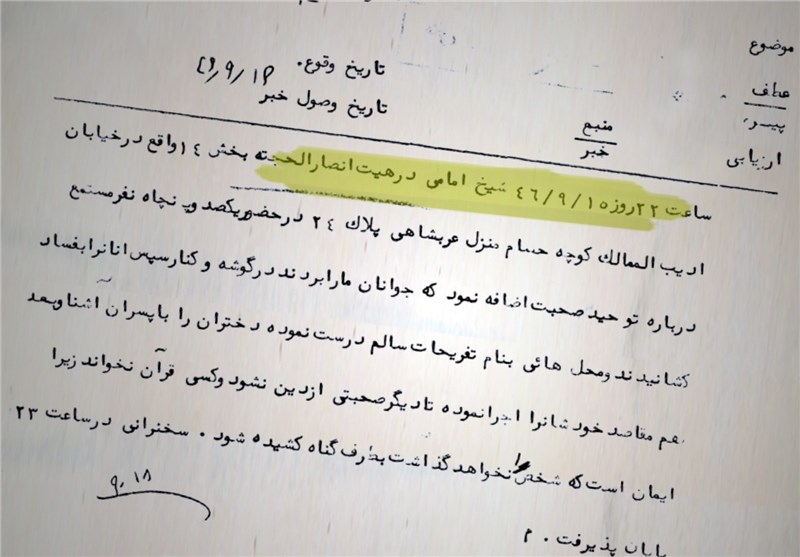 موضوع
عطف
پیرو
ارزیابی
منبع
خبر
تاریخ وقوع.
تاریخ وصول خبر
ساعت ۲۲ روز ۴۶/۹/۱۵ شیخ امامی در هیت انصارالحجته بخش ۱۴ واقع در خیابان
ادیب الممالک کوچه حسام منزل عربشاهی پلاک ۲۴ در حضور یکصد و پنجاه نفر مستمع
درباره توحید صحبت اضافه نمود که جوانان ما را بردند در گوشه و کنار سپس انانرا بفساد
کشانیدند و محل هائی بنام تفریحات سالم درست نموده دختران را با پسران آشنا و بعد
هم مقاصد خودشانرا اجرا نموده تا دیگر صحبتی از دین نشود و کسی قرآن نخواند زیرا
ایمان است که شخص را نخواهد گذاشت بطرف گناه کشیده شود . سخنرانی در ساعت ۲۳
پایان پذیرفت . م
۹٫۱۸